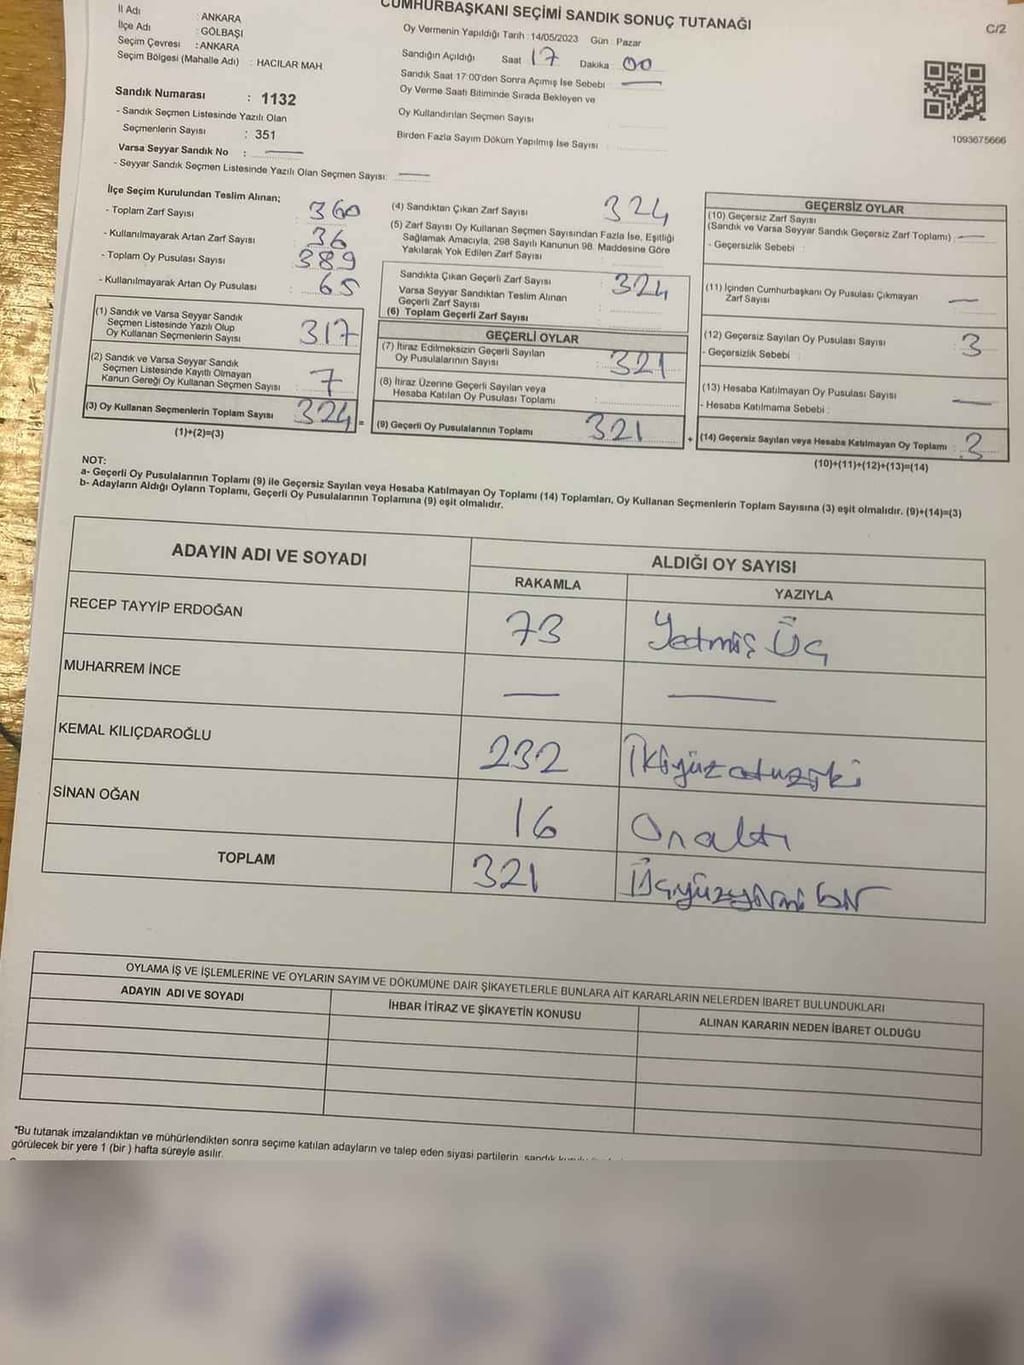 CUMHURBAŞKANI SEÇİMİ SANDIK SONUÇ TUTANAĞI
C/2
İl Adı : ANKARA
İlçe Adı : GÖLBAŞI
Seçim Çevresi : ANKARA
Seçim Bölgesi (Mahalle Adı) : HACILAR MAH
Sandık Numarası : 1132
- Sandık Seçmen Listesinde Yazılı Olan
Seçmenlerin Sayısı : 351
Varsa Seyyar Sandık No : —
- Seyyar Sandık Seçmen Listesinde Yazılı Olan Seçmen Sayısı: —
Oy Vermenin Yapıldığı Tarih : 14/05/2023 Gün : Pazar
Sandığın Açıldığı Saat 17 Dakika : 00
Sandık Saat 17:00'den Sonra Açımış İse Sebebi : —
Oy Verme Saati Bitiminde Sırada Bekleyen ve
Oy Kullandırılan Seçmen Sayısı
Birden Fazla Sayım Döküm Yapılmış İse Sayısı :
1093675666
İlçe Seçim Kurulundan Teslim Alınan;
- Toplam Zarf Sayısı : 360
- Kullanılmayarak Artan Zarf Sayısı : 36
- Toplam Oy Pusulası Sayısı : 389
- Kullanılmayarak Artan Oy Pusulası : 65
(1) Sandık ve Varsa Seyyar Sandık
Seçmen Listesinde Yazılı Olup
Oy Kullanan Seçmenlerin Sayısı : 317
(2) Sandık ve Varsa Seyyar Sandık
Seçmen Listesinde Kayıtlı Olmayan
Kanun Gereği Oy Kullanan Seçmen Sayısı : 7
(3) Oy Kullanan Seçmenlerin Toplam Sayısı : 324 =
(1)+(2)=(3)
(4) Sandıktan Çıkan Zarf Sayısı : 324
(5) Zarf Sayısı Oy Kullanan Seçmen Sayısından Fazla İse, Eşitliği
Sağlamak Amacıyla, 298 Sayılı Kanunun 98. Maddesine Göre
Yakılarak Yok Edilen Zarf Sayısı :
Sandıkta Çıkan Geçerli Zarf Sayısı : 324
Varsa Seyyar Sandıktan Teslim Alınan
Geçerli Zarf Sayısı :
(6) Toplam Geçerli Zarf Sayısı :
GEÇERLİ OYLAR
(7) İtiraz Edilmeksizin Geçerli Sayılan
Oy Pusulalarının Sayısı : 321
(8) İtiraz Üzerine Geçerli Sayılan veya
Hesaba Katılan Oy Pusulası Toplamı :
(9) Geçerli Oy Pusulalarının Toplamı : 321 +
GEÇERSİZ OYLAR
(10) Geçersiz Zarf Sayısı
(Sandık ve Varsa Seyyar Sandık Geçersiz Zarf Toplamı) : —
- Geçersizlik Sebebi :
(11) İçinden Cumhurbaşkanı Oy Pusulası Çıkmayan
Zarf Sayısı : —
(12) Geçersiz Sayılan Oy Pusulası Sayısı : 3
- Geçersizlik Sebebi :
(13) Hesaba Katılmayan Oy Pusulası Sayısı : —
- Hesaba Katılmama Sebebi :
(14) Geçersiz Sayılan veya Hesaba Katılmayan Oy Toplamı : 3
(10)+(11)+(12)+(13)=(14)
NOT:
a- Geçerli Oy Pusulalarının Toplamı (9) ile Geçersiz Sayılan veya Hesaba Katılmayan Oy Toplamı (14) Toplamları, Oy Kullanan Seçmenlerin Toplam Sayısına (3) eşit olmalıdır. (9)+(14)=(3)
b- Adayların Aldığı Oyların Toplamı, Geçerli Oy Pusulalarının Toplamına (9) eşit olmalıdır.
ADAYIN ADI VE SOYADI ALDIĞI OY SAYISI
RAKAMLA YAZIYLA
RECEP TAYYİP ERDOĞAN 73 Yetmiş Üç
MUHARREM İNCE — —
KEMAL KILIÇDAROĞLU 232 İkiyüzotuziki
SİNAN OĞAN 16 Onaltı
TOPLAM 321 Üçyüzyirmi bir
OYLAMA İŞ VE İŞLEMLERİNE VE OYLARIN SAYIM VE DÖKÜMÜNE DAİR ŞİKAYETLERLE BUNLARA AİT KARARLARIN NELERDEN İBARET BULUNDUKLARI
ADAYIN ADI VE SOYADI İHBAR İTİRAZ VE ŞİKAYETİN KONUSU ALINAN KARARIN NEDEN İBARET OLDUĞU
*Bu tutanak imzalandıktan ve mühürlendikten sonra seçime katılan adayların ve talep eden siyasi partilerin, sandık
görülecek bir yere 1 (bir) hafta süreyle asılır.